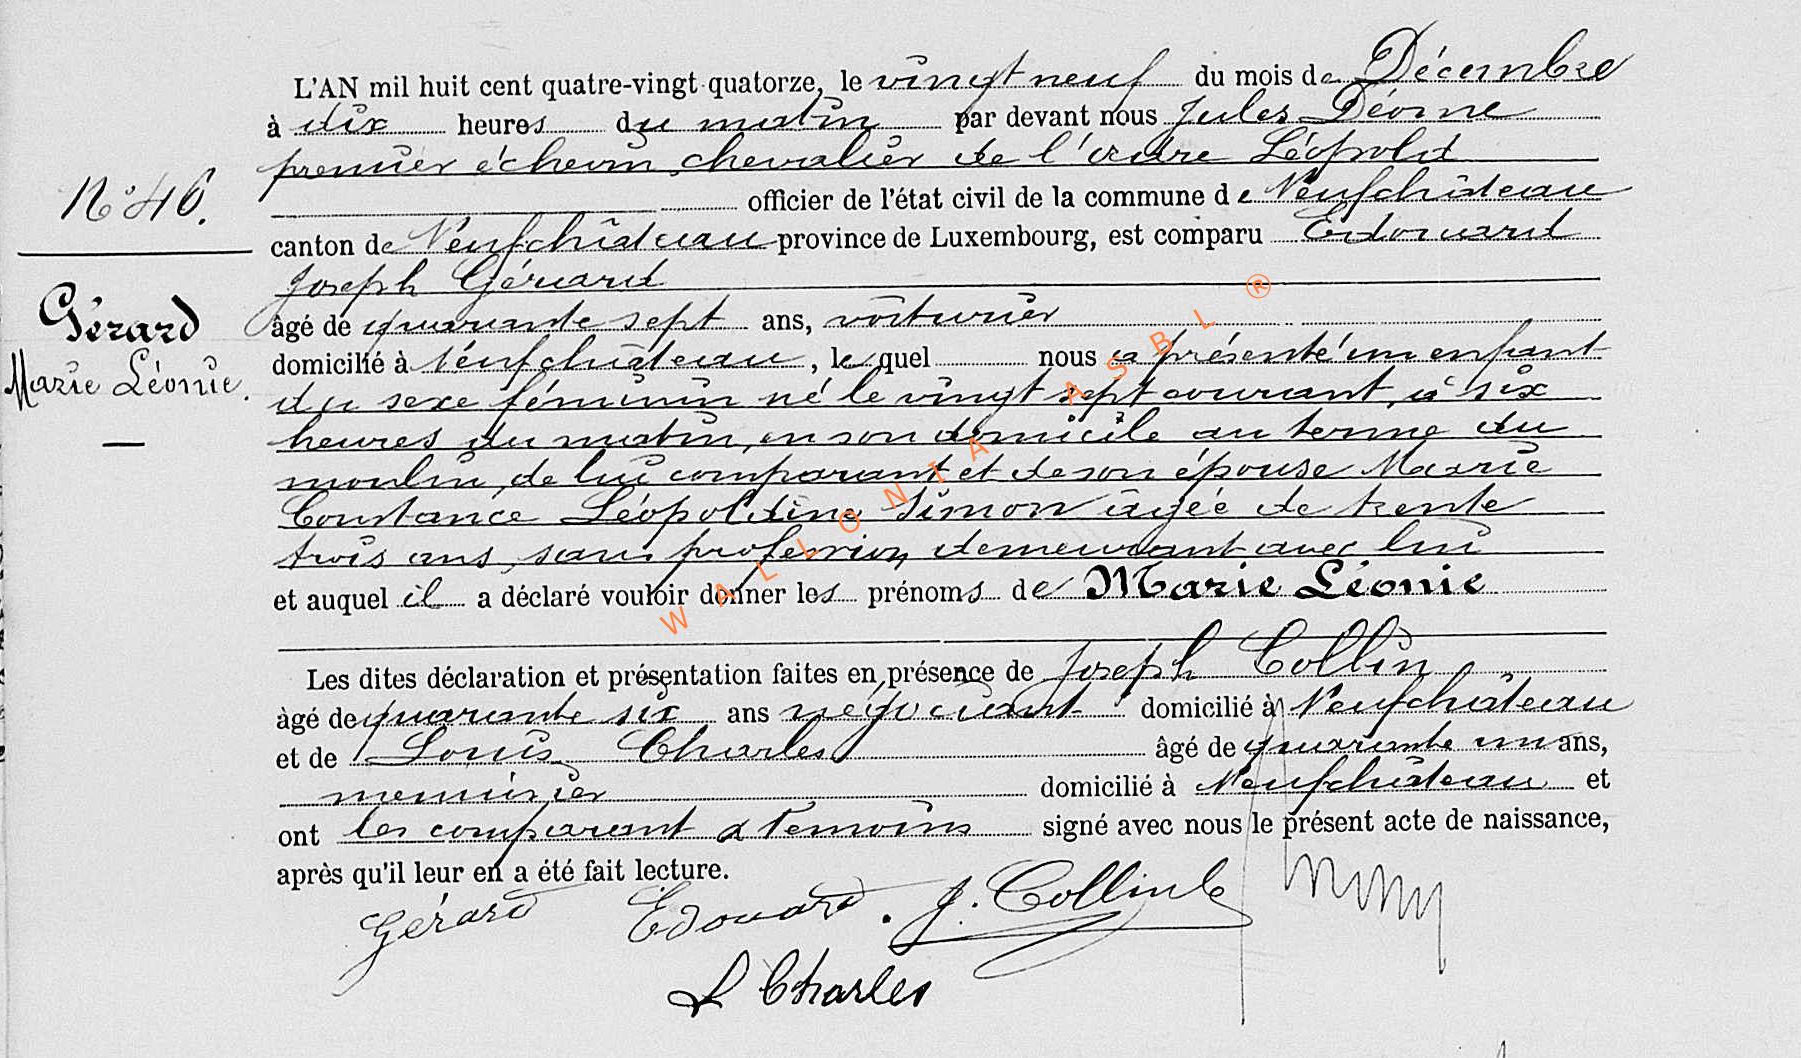 L'AN mil huit cent quatre-vingt quatorze, le vingt neuf du mois de Décembre
à dix heures du matin par devant nous Jules
premier échevin, chevalier de l'ordre Léopold
N° 46. officier de l'état civil de la commune de Neufchâteau
canton de Neufchâteau province de Luxembourg, est comparu Edouard
Joseph Gérard
Gérard
Marie Léonie.
âgé de quarante sept ans, voiturier
domicilié à Neufchâteau, lequel nous a présenté un enfant
du sexe féminin né le vingt sept courant, à six
heures du matin, en son domicile au terme du
moulin, de lui comparant et de son épouse Marie
Constance Léopoldine Simon âgée de trente
trois ans, sans profession, demeurant avec lui
et auquel il a déclaré vouloir donner les prénoms de Marie Léonie
Les dites déclaration et présentation faites en présence de Joseph Collin
âgé de quarante six ans négociant domicilié à Neufchâteau
et de Louis Charles âgé de quarante un ans,
menuisier domicilié à Neufchâteau et
ont les comparant & témoins signé avec nous le présent acte de naissance,
après qu'il leur en a été fait lecture.
Gérard Edouard. J. Collin
L Charles
WALLONIA ASBL ®